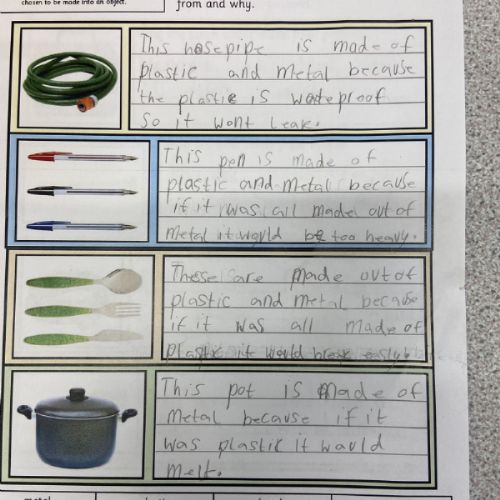 chosen to be made into an object.
from and why.
This hosepipe is made of
plastic and metal because
the plastic is wateproof
So it wont leak.
This pen is made of
plastic and metal because
if it was all made out of
metal it would be too heavy.
These are made out of
plastic and metal because
if it was all made of
Plastic it would break easly.
This pot is made of
metal because if it
was plastic it would
melt.
metal